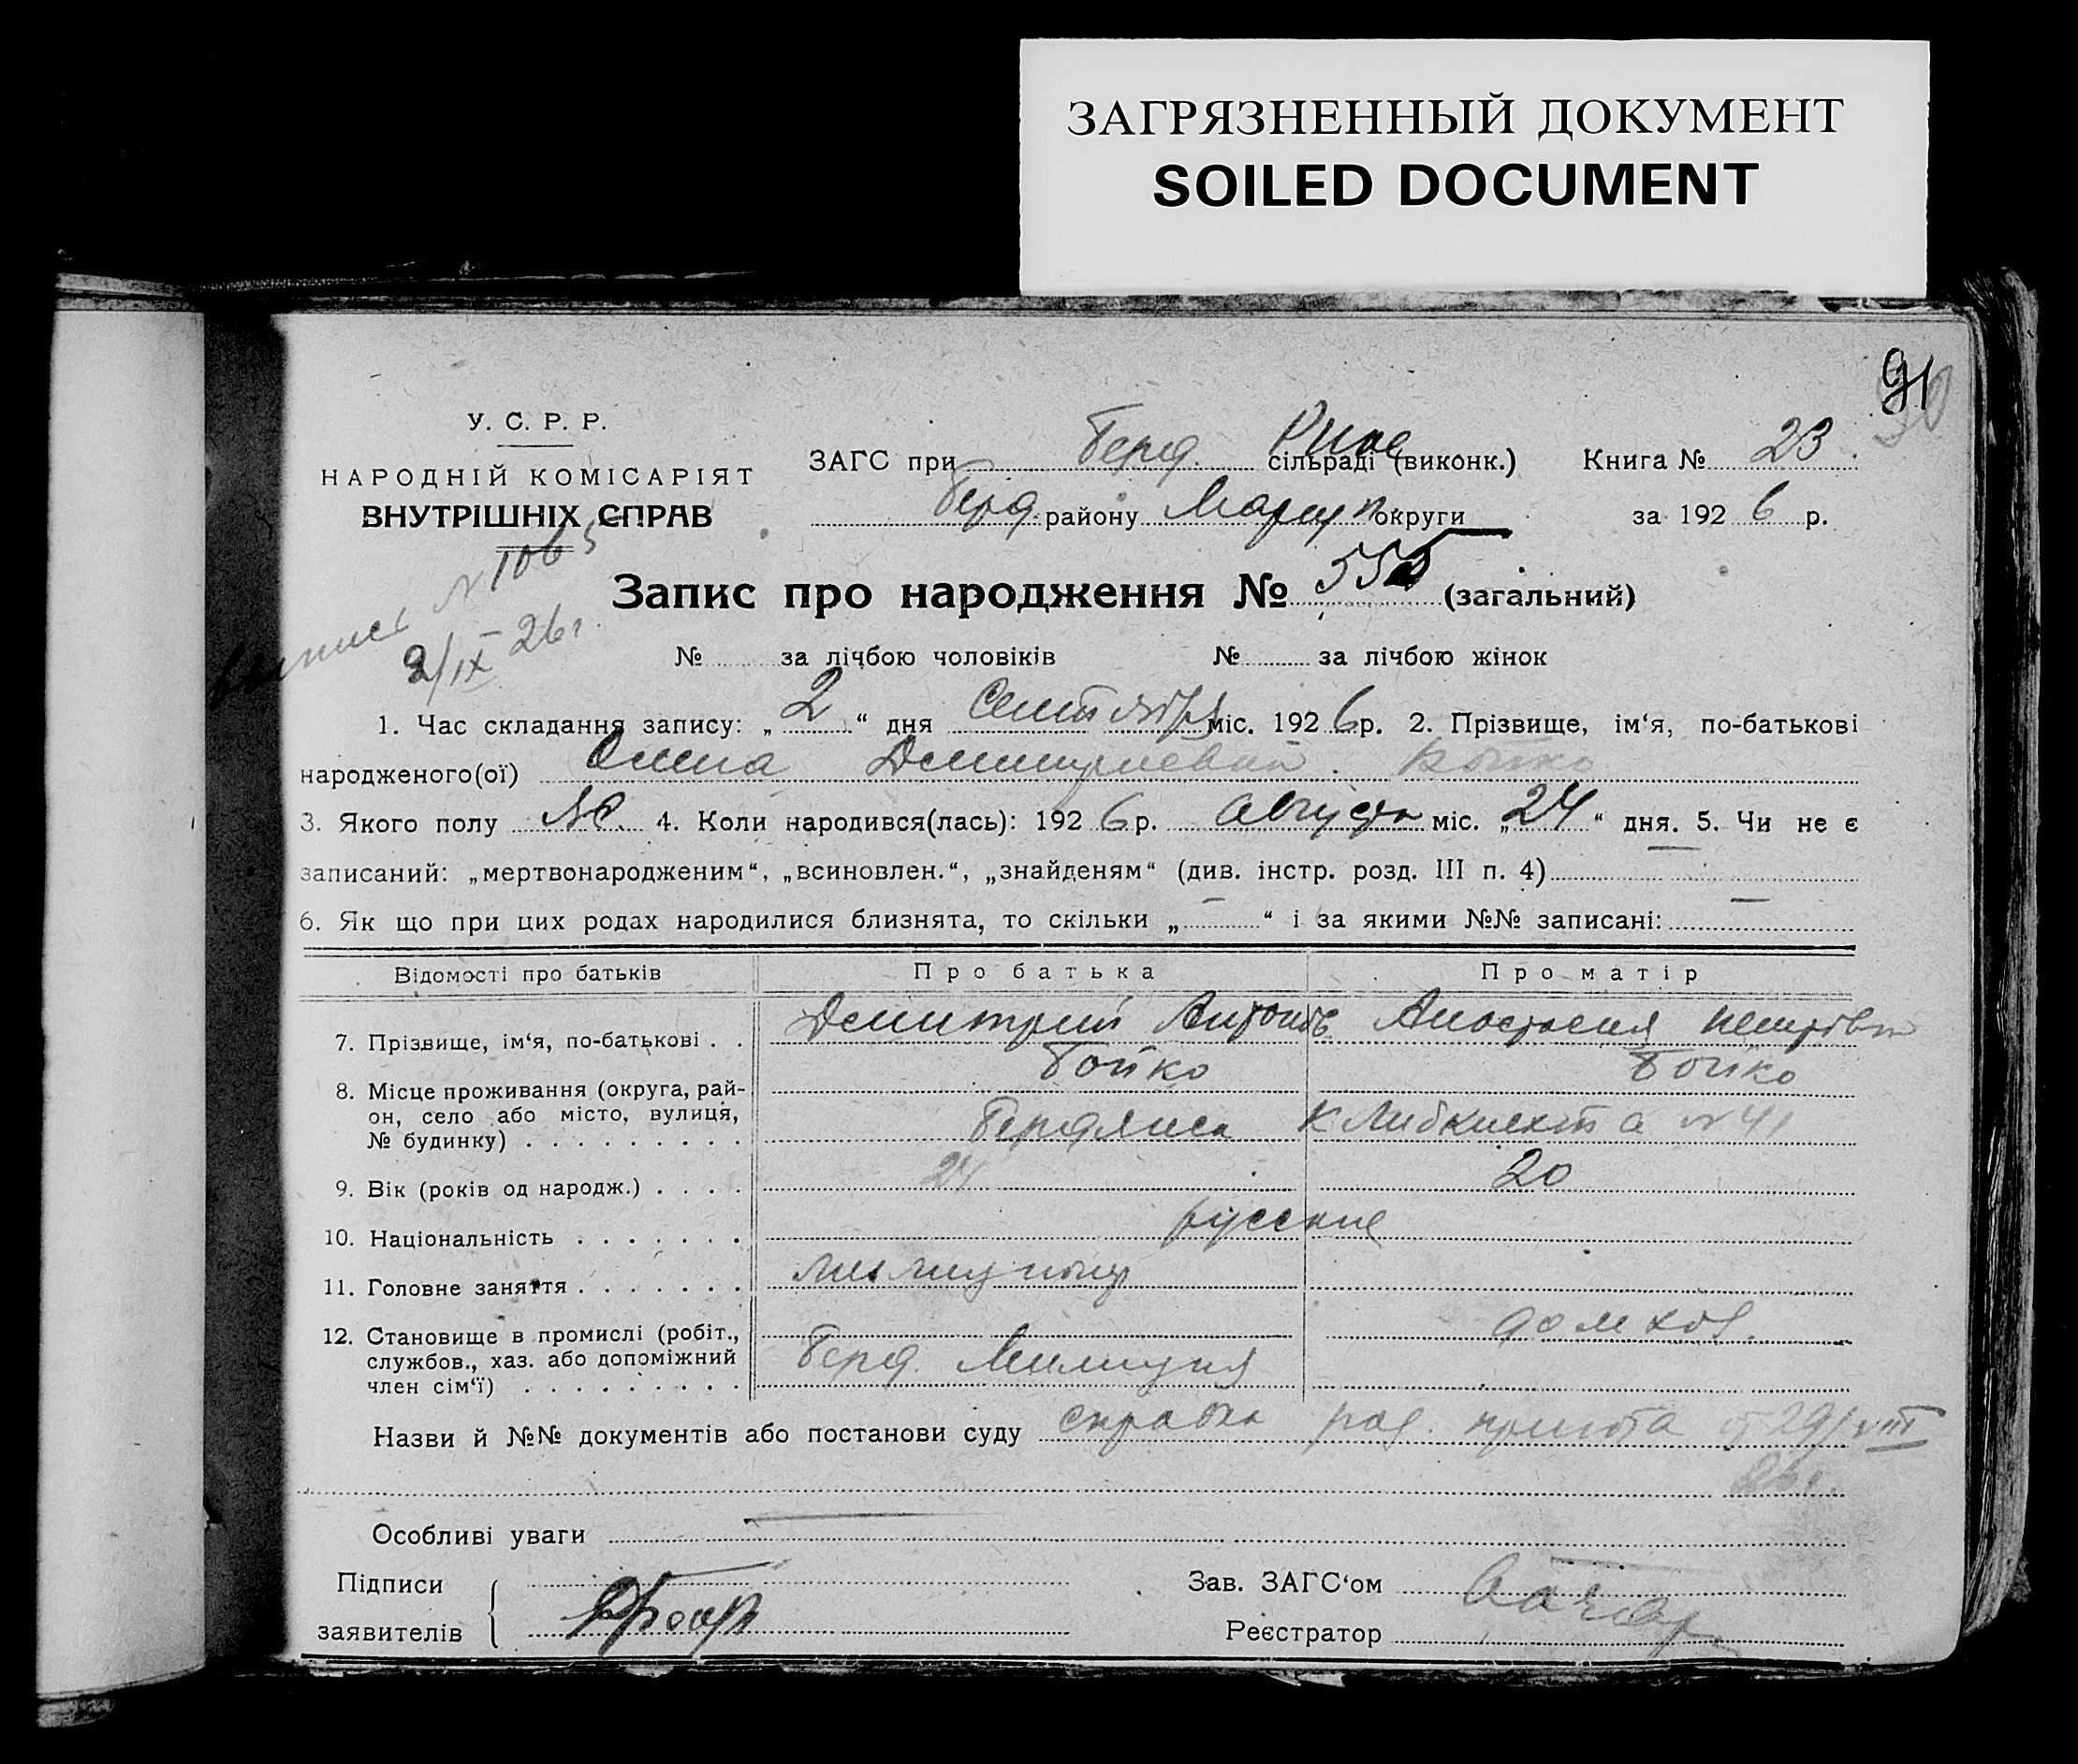 ЗАГРЯЗНЕННЫЙ ДОКУМЕНТ
SOILED DOCUMENT
91
У. С. Р. Р.
НАРОДНІЙ КОМІСАРІЯТ
ВНУТРІШНІХ СПРАВ
ЗАГС при Берд. сільраді (виконк.) Книга № 23
Берд. району Мариуп округи за 1926 р.
№ 1065
2/IX 26 г.
Запис про народження № 555 (загальний)
№ за лічбою чоловіків № за лічбою жінок
1. Час складання запису: „2“ дня Сентября міс. 1926 р. 2. Прізвище, ім‘я, по-батькові
народженого(ої) Бойко
3. Якого полу 4. Коли народився(лась): 1926 р. Августа міс. „24“ дня. 5. Чи не є
записаний: „мертвонародженим“, „всиновлен.“, „знайденям“ (див. інстр. розд. III п. 4) —
6. Як що при цих родах народилися близнята, то скільки „—“ і за якими №№ записані: —
Відомості про батьків Про батька Про матір
7. Прізвище, ім‘я, по-батькові . . Димитрий Антонов Анастасия Петровн
Бойко Бойко
8. Місце проживання (округа, рай-
он, село або місто, вулиця,
№ будинку) . . . . . . . . . Бердянск К Либкнехта № 41
9. Вік (років од народж.) . . . . 24 20
10. Національність . . . . . . . русские
11. Головне заняття . . . . . . .
12. Становище в промислі (робіт.,
службов., хаз. або допоміжний
член сім‘ї) . . . . . . . . . Берд. Милиция домхоз.
Назви й №№ документів або постанови суду справка род. приюта от 29/VIII
26 г.
Особливі уваги —
Підписи
заявителів
Зав. ЗАГС‘ом
Реєстратор